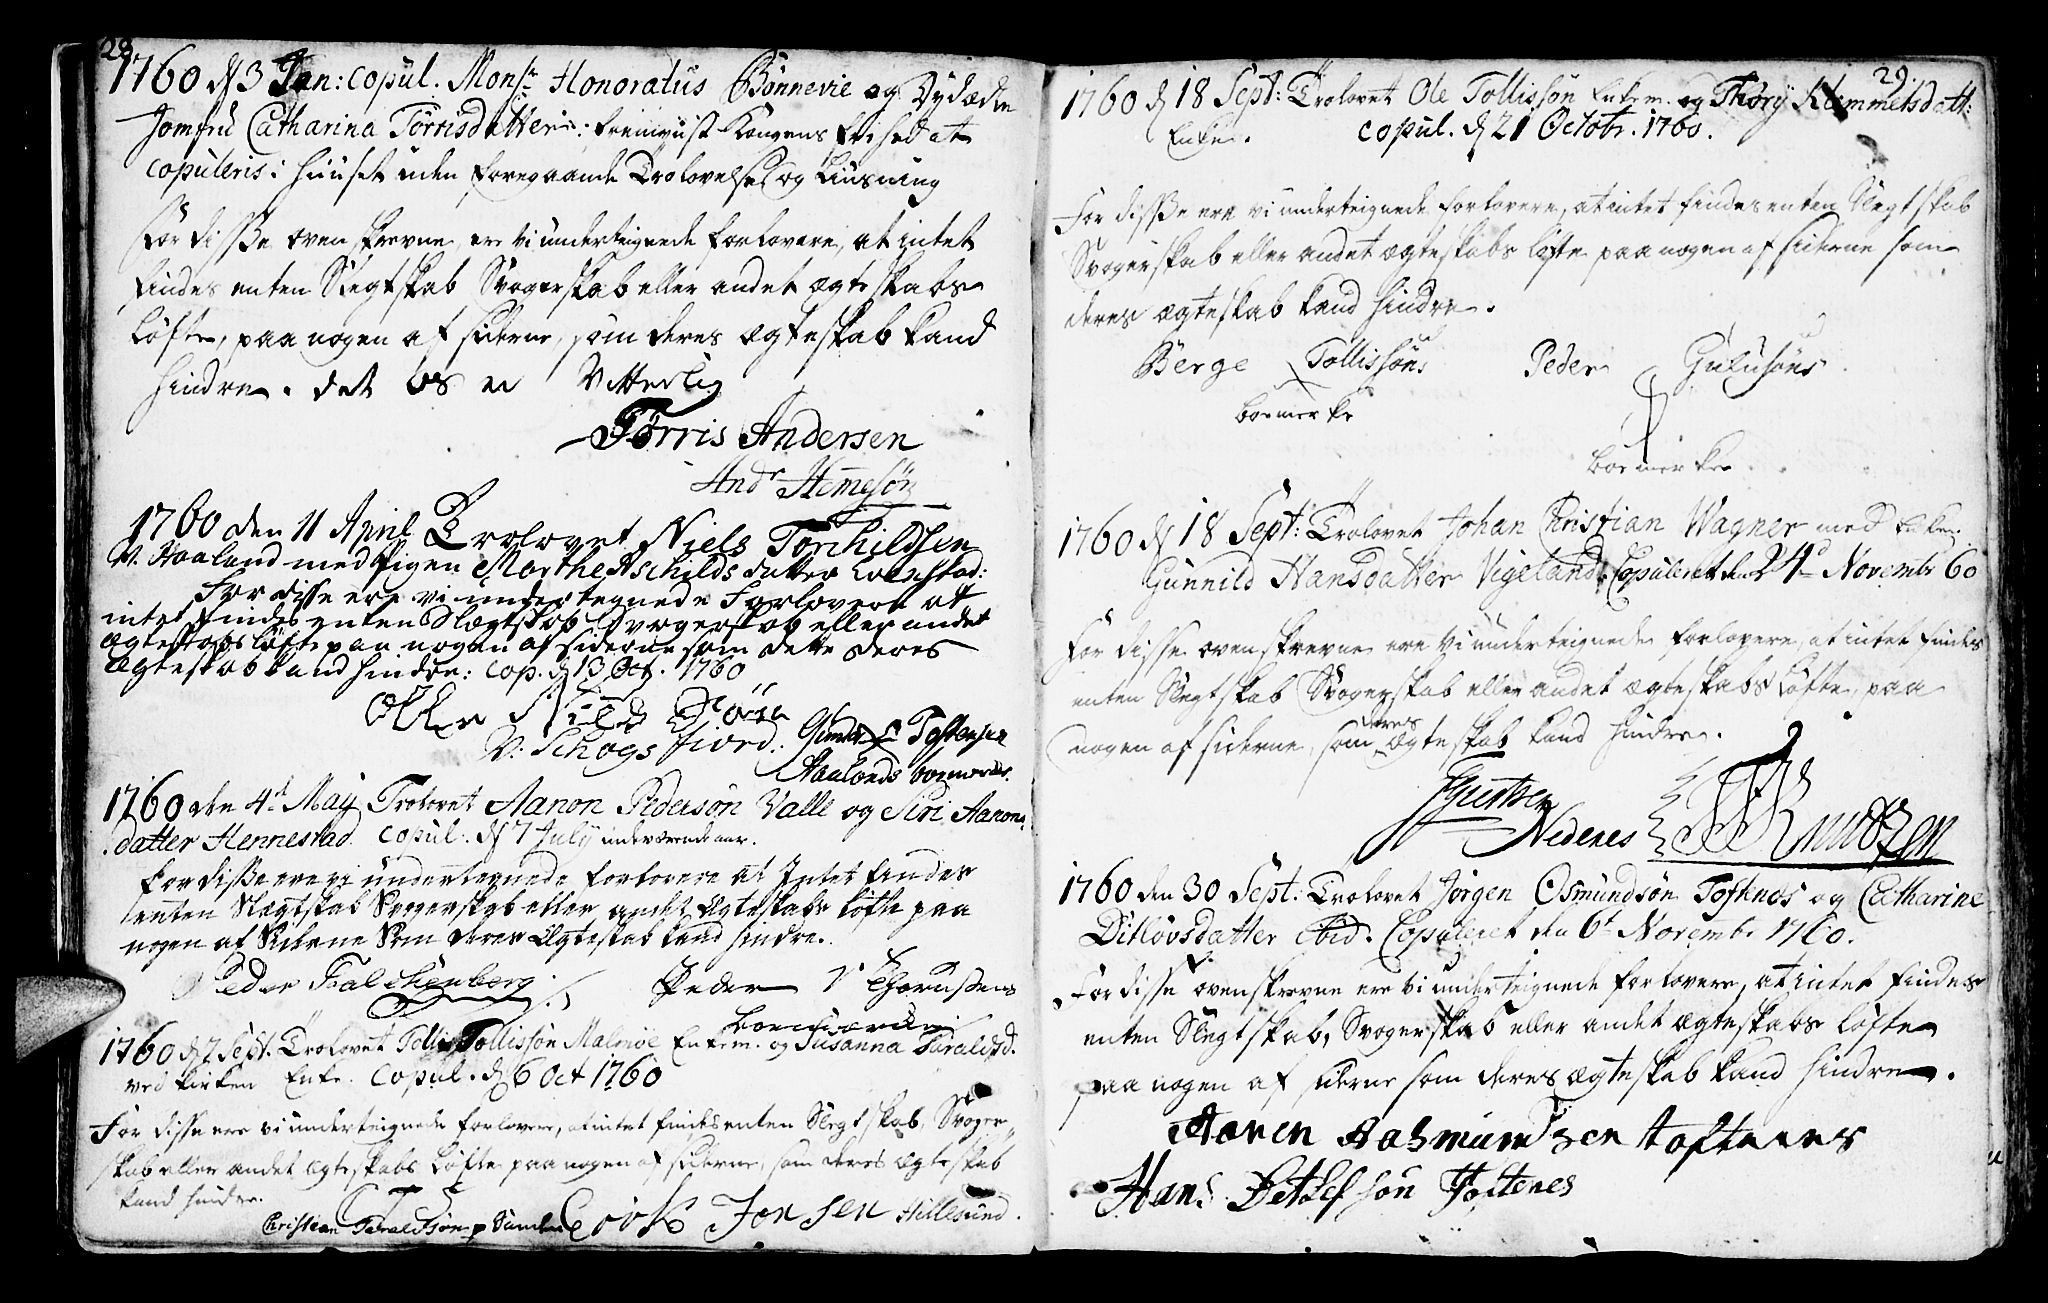 28
1760 d 3 Jan: copul. Monsr Honoratus Bonnevie og Dydædle
Jomfru Catharina Tørrisdatter: frem viist Kongens frihed at
copuleris i Huuset uden foregaaende Trolovelse og Liusning
For disse oven skrevne, ere vi underteignede forlovere, at intet
findes enten Slegtskab Svogerskab eller andet ægteskabs
Løfte, paa nogen af siderne, som deres Ægteskab kand
hindre. det os er Vitterlig
Tørris Andersen
Andr Hemesøn
1760 den 11 April Trolovet Niels Torchildsen
V. Haaland med Pigen Marthe Aschilds datter
For disse ere vi undertegnede Forlovere at
intet findes enten Slægtskab Svogerskab eller andet
ægteskabs løfte paa nogen af siderne som dette deres
Ægteskab kand hindre: cop. d 13 Oct. 1760
Niels
V: Schogsfiord. Tostensen
Haalands boemercke.
1760 den 4d May Trolovet Aanon Pedersøn Valle og Siri Aanons
datter Hennestad. copul. d 7 July indeværende aar.
For disse ere vi undertegnede forlovere at Intet findes
enten Slægtskab Svogerskab eller andet Ægteskabs løfte paa
nogen af Siderne Som deres Ægteskab kand hindre.
Peder Falchenberg Peder Biørnssens
boemærcke
1760 d 7 Sept. Trolovet Tollis Tollissøn Malmøe Enkem. og Susanna Taraldsd.
ved kirken Enke. copul. d 6 Oct 1760
For disse ere vi underteignede forlovere, at intet findes enten Slegtskab, Svoger-
skab eller andet ægteskabs Løfte paa nogen af siderne, som deres ægteskab
kand hindre.
Christian Taraldsøn Erik Jonsen Hillesund.
29.
1760 d 18 Sept: Trolovet Ole Tollissøn Enkem. og Thory Klemmetsdatt:
Enke. copul. d 21 Octobr. 1760.
For disse ere vi underteignede forlovere, at intet findes enten Slegtskab
Svogerskab eller andet ægteskabs løfte paa nogen af siderne som
deres ægteskab kand hindre.
Berge Tollissøns Peder Gulusøns
boemerke
boemerke
1760 d 18 Sept: Trolovet Johan Christian Wagner med
Gunnild Hansdatter Vigeland. Copuleret den 24d Novembr 60
For disse ovenskrevne ere vi underteignede forlovere, at intet findes
enten Slegtskab Svogerskab eller andet ægteskabs Løfte, paa
nogen af siderne, som deres Ægteskab kand hindre.
Nedenes Knudtzen
1760 den 30 Sept: Trolovet Jørgen Osmundsøn Toftnes og Catharine
Ditlovsdatter ibid. Copuleret den 6t Novembr 1760.
For disse ovenskrevne ere vi underteignede forlovere, at intet findes
enten Slegtskab, Svogerskab eller andet ægteskabs løfte
paa nogen af siderne som deres ægteskab kand hindre.
Aanen Aasmundzen toftenes
Hans Detlef søn Toftenes